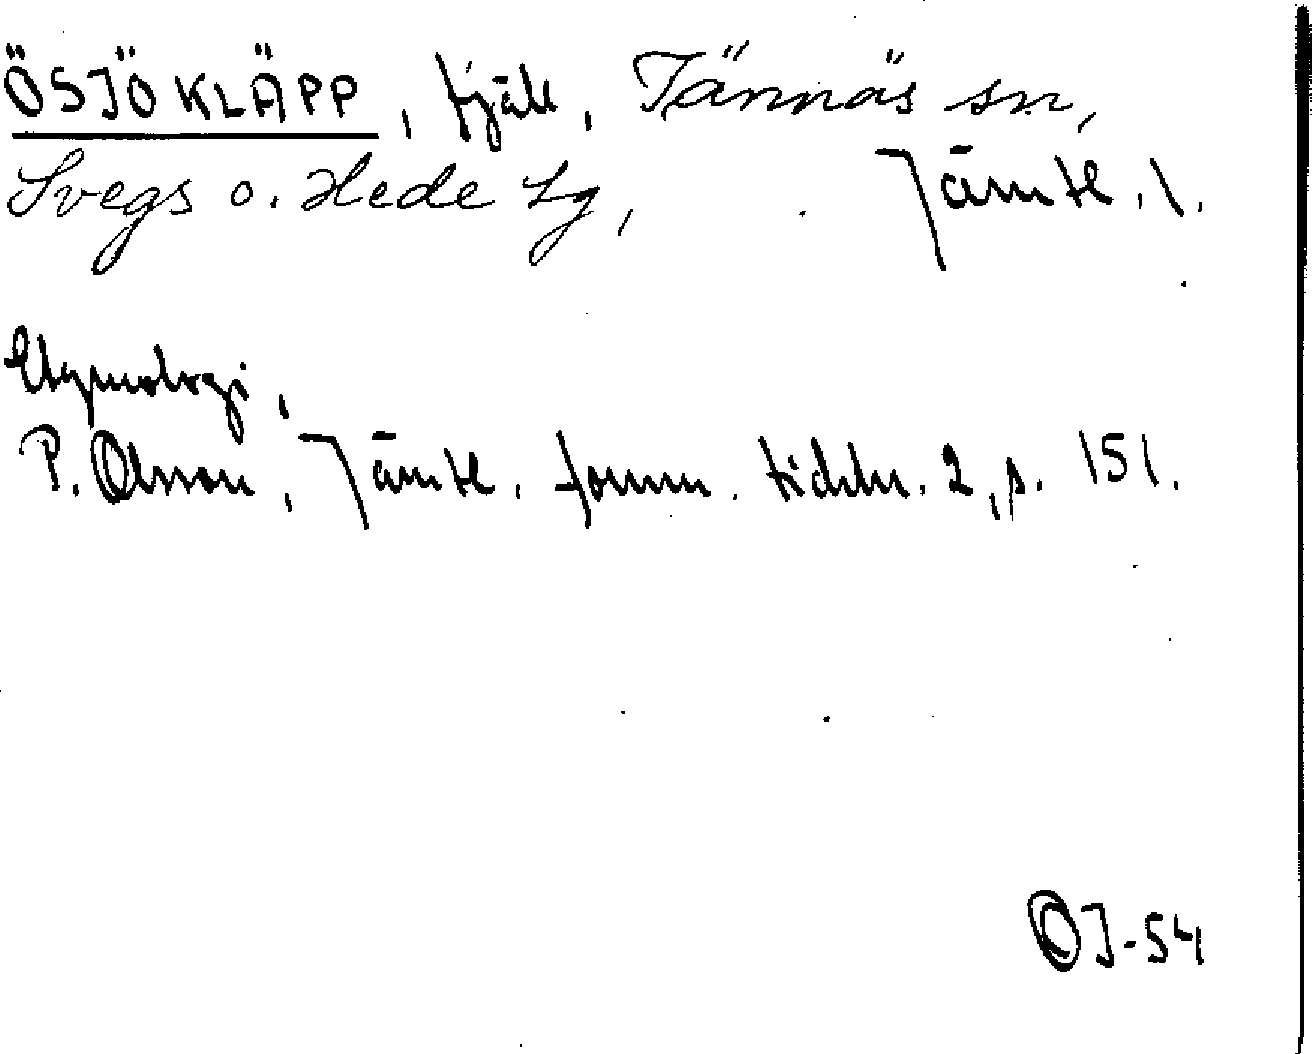 ÖSJÖKLÄPP, fjäll, Tännäs sn,
Svegs o. Hede tg, Jämtl. l.
Etymologi,
P. Olsson, Jämtl. fornm. tidskr. 2, s. 151.
OJ-54